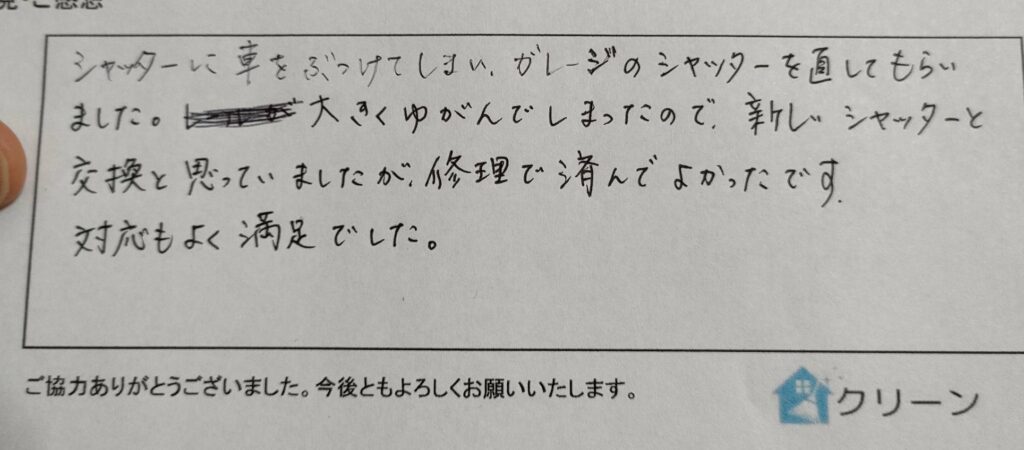 ご感想
シャッターに車をぶつけてしまい、ガレージのシャッターを直してもらい
ました。大きくゆがんでしまったので、新しいシャッターと
交換と思っていましたが、修理で済んでよかったです。
対応もよく満足でした。
ご協力ありがとうございました。今後ともよろしくお願いいたします。
クリーン